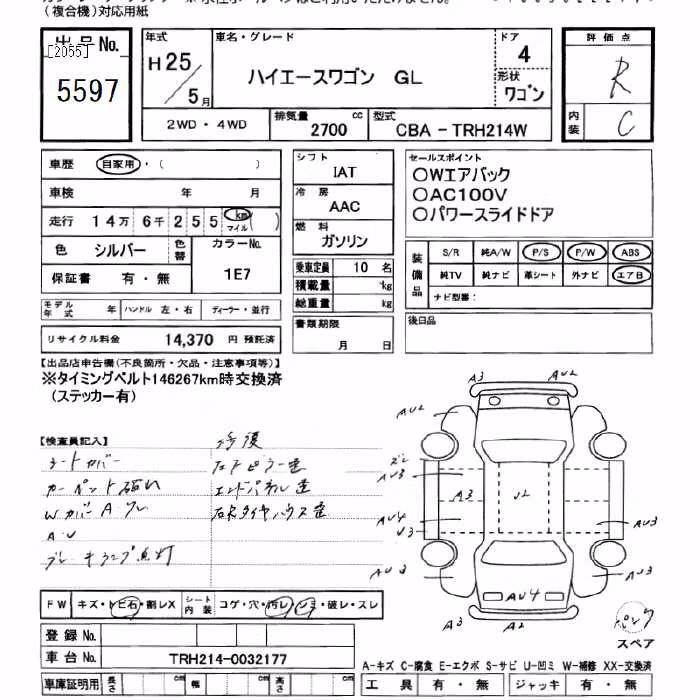 (複合機)対応用紙
出品No.
[2055]
5597
年式
H25/5月
車名・グレード
ハイエースワゴン GL
ドア
4
形状
ワゴン
評価点
R
内装
C
2WD・4WD
排気量
2700 cc
型式
CBA-TRH214W
車歴 自家用・( )
車検 年 月
走行 14万 6千 255 km マイル ( )
色 シルバー 色替 カラーNo.
保証書 有・無 1E7
シフト
IAT
冷房
AAC
燃料
ガソリン
乗車定員 10 名
積載量 kg
総重量 kg
書類期限
月 日
セールスポイント
○Wエアバック
○AC100V
○パワースライドドア
装備品
S/R 純A/W P/S P/W ABS
純TV 純ナビ 革シート 外ナビ エアB
ナビ型番:
後日品
モデル年式 年 ハンドル 左・右 ディーラー・並行
リサイクル料金 14,370 円 預託済
【出品店申告欄(不良箇所・欠品・注意事項等)】
※タイミングベルト146267km時交換済
(ステッカー有)
【検査員記入】
修復
シートカバー
カーペット破れ
エンドパネル歪
WカバーAワレ
AU
ブレーキランプ点灯
A3
AU2
AU2
AU3
A3
AU4
U3
AU3
AU3
AU3
AU4
A3
A2
パンク
スペア
FW キズ・トビ石・割レX シート内装 コゲ・穴・汚レ・シミ・破レ・スレ
登録No.
車台No. TRH214-0032177
車庫証明用 長さ cm 幅 cm 高さ cm
A-キズ C-腐食 E-エクボ S-サビ U-凹ミ W-補修 XX-交換済
工具 有・無 ジャッキ 有・無